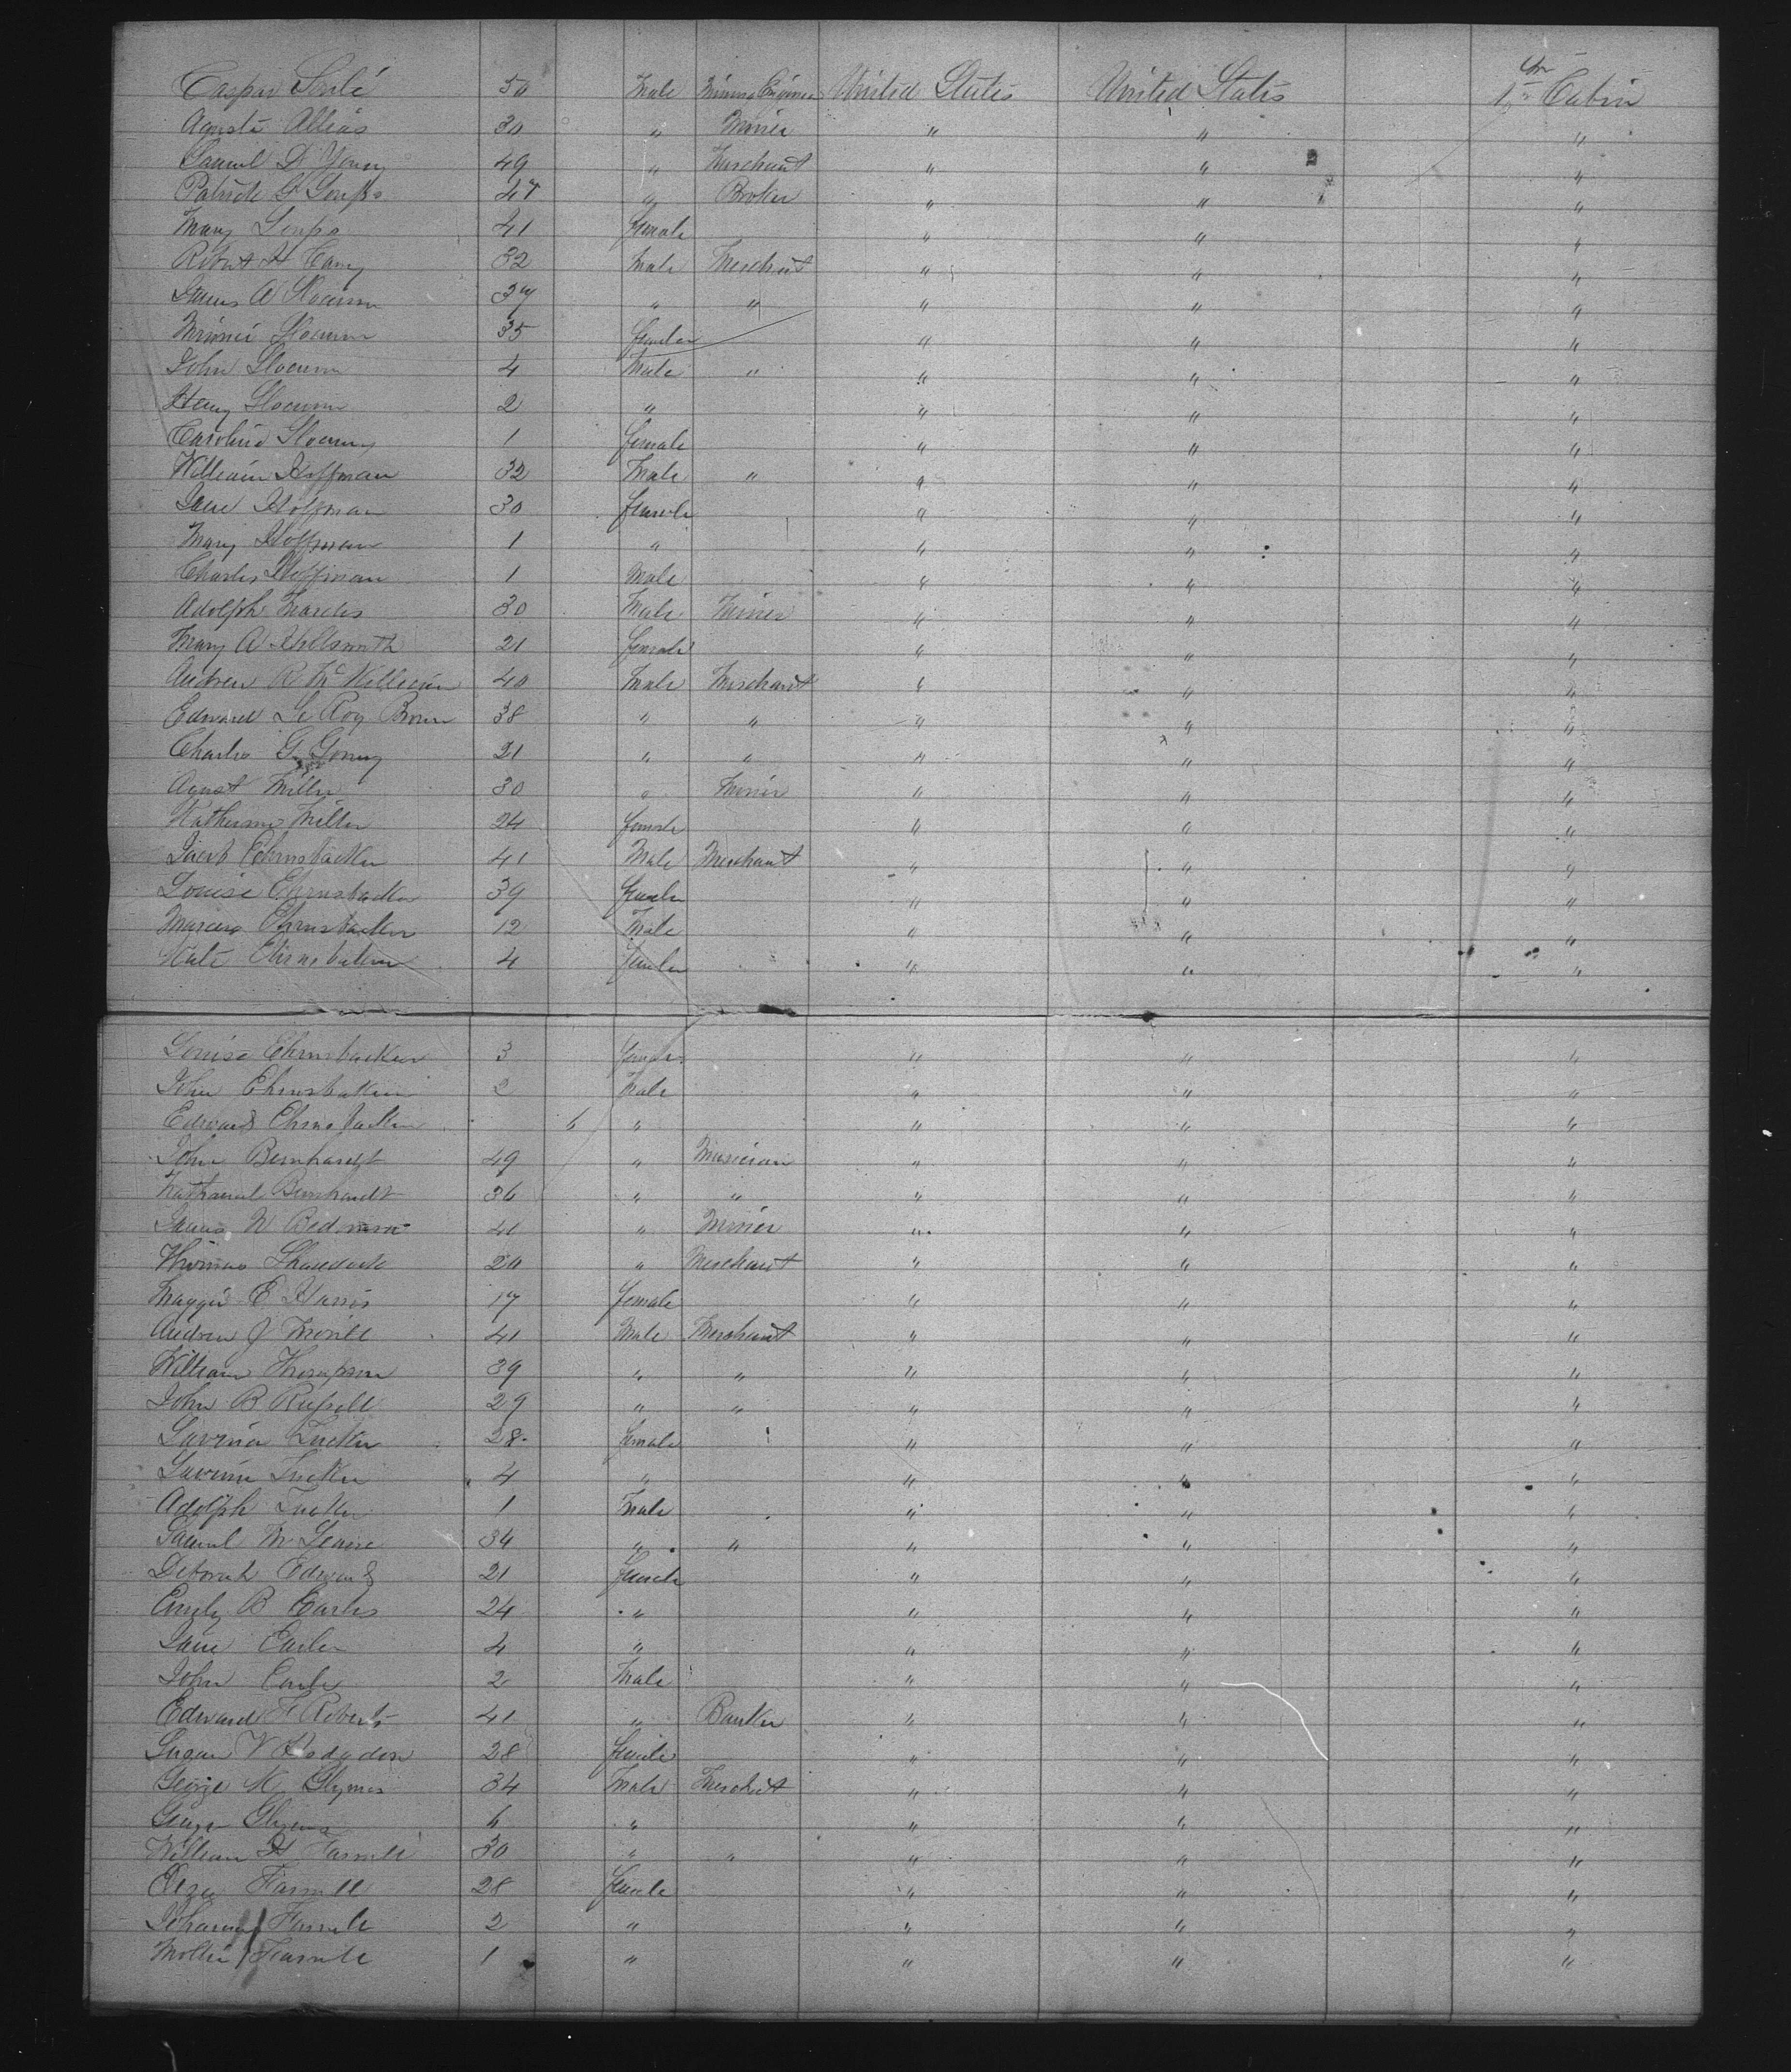 50 Male Mining Engineer United States United States 1st Cabin
30 " Miner " " "
Samuel D Young 49 " Merchant " " "
47 " Broker " " "
Mary 41 female " " "
Robert H 32 Male Merchant " " "
James A Slocum 37 " " " " "
Minnie Slocum 35 female " " "
John Slocum 4 Male " " " "
Henry Slocum 2 " " " "
Caroline Slocum 1 female " " "
William Hoffman 32 Male " " " "
Jane Hoffman 30 female " " "
Mary Hoffman 1 " " " "
Charles Hoffman 1 Male " " "
Adolph 30 Male Miner " " "
Mary A 21 female " " "
Andrew R McWilliam 40 Male Merchant " " "
Edward Le Roy Brown 38 " " " " "
Charles G 21 " " " " "
Agust Miller 30 " Miner " " "
Katherine Miller 24 female " " "
Jacob Ehrnsbacker 41 Male Merchant " " "
Louise Ehrnsbacker 39 female " " "
Marcus Ehrnsbacker 12 Male " " "
Kate Ehrnsbacker 4 female " " "
Louise Ehrnsbacker 3 female " " "
John Ehrnsbacker 2 Male " " "
Edward Ehrnsbacker 6 " " " "
John Bernhardt 49 " Musician " " "
Nathaniel Bernhardt 36 " " " " "
James W 41 " Miner " " "
Thomas 20 " Merchant " " "
Maggie E Harris 17 female " " "
Andrew J 41 Male Merchant " " "
William Thompson 39 " " " " "
John B Russell 29 " " " " "
Lavina Tucker 28 female " " "
Lavina Tucker 4 " " " "
Adolph Tucker 1 Male " " "
Samuel M 34 " " " " "
Deborah Edwards 21 female " " "
Emily B Earles 24 " " " "
Jane Earles 4 " " " "
John Earles 2 Male " " "
Edward F Roberts 41 " Banker " " "
Susan V Hodgdon 28 female " " "
George K 34 Male Merchant " " "
George 6 " " " "
William H Farrell 30 " " " " "
Farrell 28 female " " "
Johanna Farrell 2 " " " "
Mollie Farrell 1 " " " "